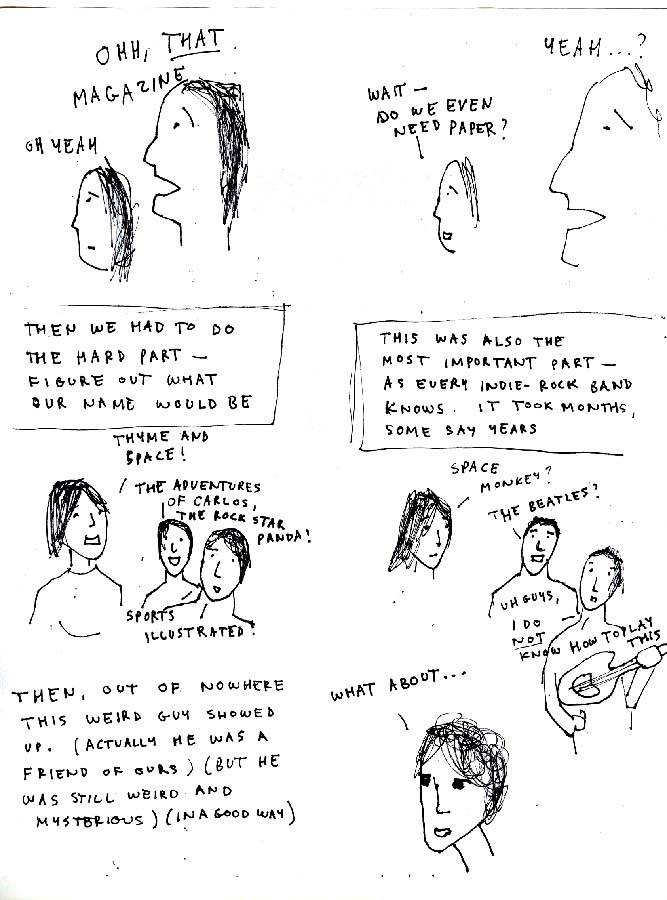 OHH, THAT
MAGAZINE
OH YEAH
YEAH...?
WAIT —
DO WE EVEN
NEED PAPER?
THEN WE HAD TO DO
THE HARD PART —
FIGURE OUT WHAT
OUR NAME WOULD BE
THIS WAS ALSO THE
MOST IMPORTANT PART —
AS EVERY INDIE-ROCK BAND
KNOWS. IT TOOK MONTHS,
SOME SAY YEARS
THYME AND
SPACE!
THE ADVENTURES
OF CARLOS,
THE ROCK STAR
PANDA!
SPORTS
ILLUSTRATED!
SPACE
MONKEY?
THE BEATLES?
UH GUYS,
I DO
NOT
KNOW HOW TO PLAY
THIS
THEN, OUT OF NOWHERE
THIS WEIRD GUY SHOWED
UP. (ACTUALLY HE WAS A
FRIEND OF OURS) (BUT HE
WAS STILL WEIRD AND
MYSTERIOUS) (IN A GOOD WAY)
WHAT ABOUT...